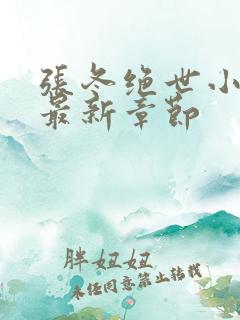 張冬绝世小
最新章節
胖妞妞
未经同意禁止转载